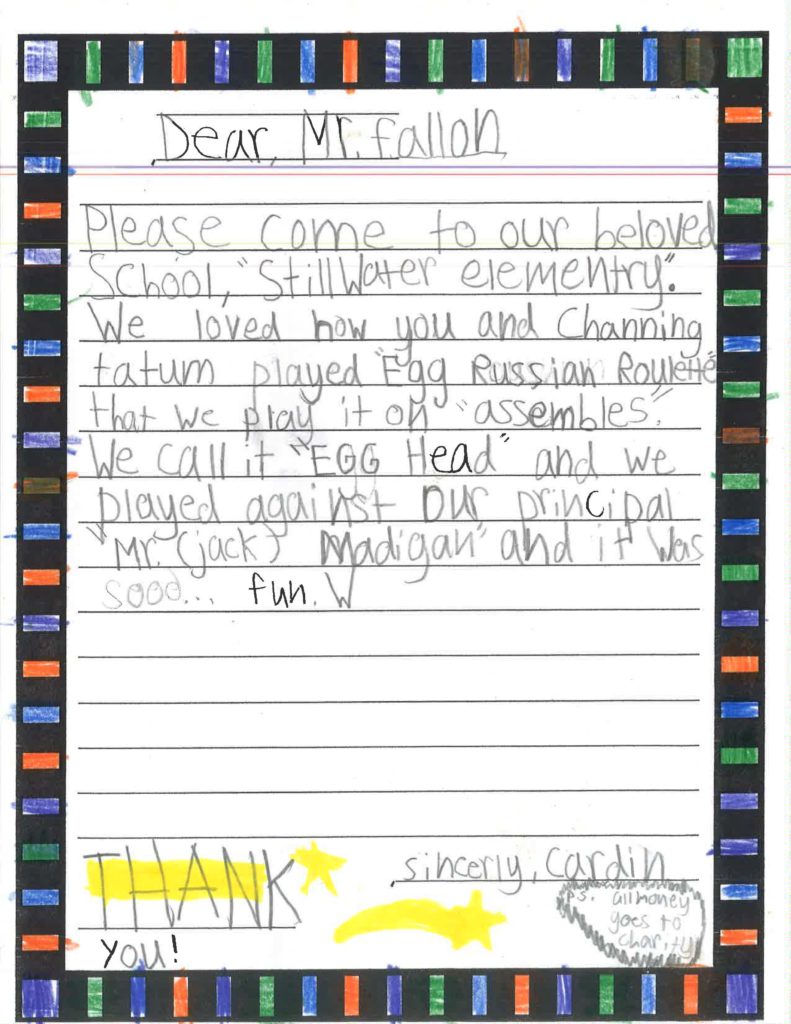 Dear, Mr. fallon
Please come to our beloved
School, "StillWater elementry".
We loved how you and Channing
tatum played "Egg Russian Roulette"
that we play it on "assembles".
We call it "EGG Head" and we
played against our principal
"Mr. (jack) Madigan" and it was
sooo... fun. W
THANK
you!
sincerly, Cardin
p.s. all money
goes to
charity